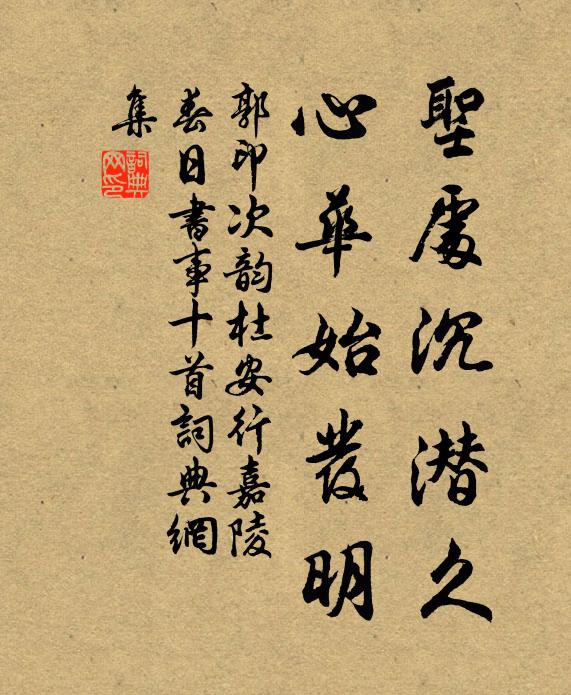 聖處沉潜久
心華始發明
郭印次韵杜安行嘉陵
春日書事十首詞典網
集
詞典
网印